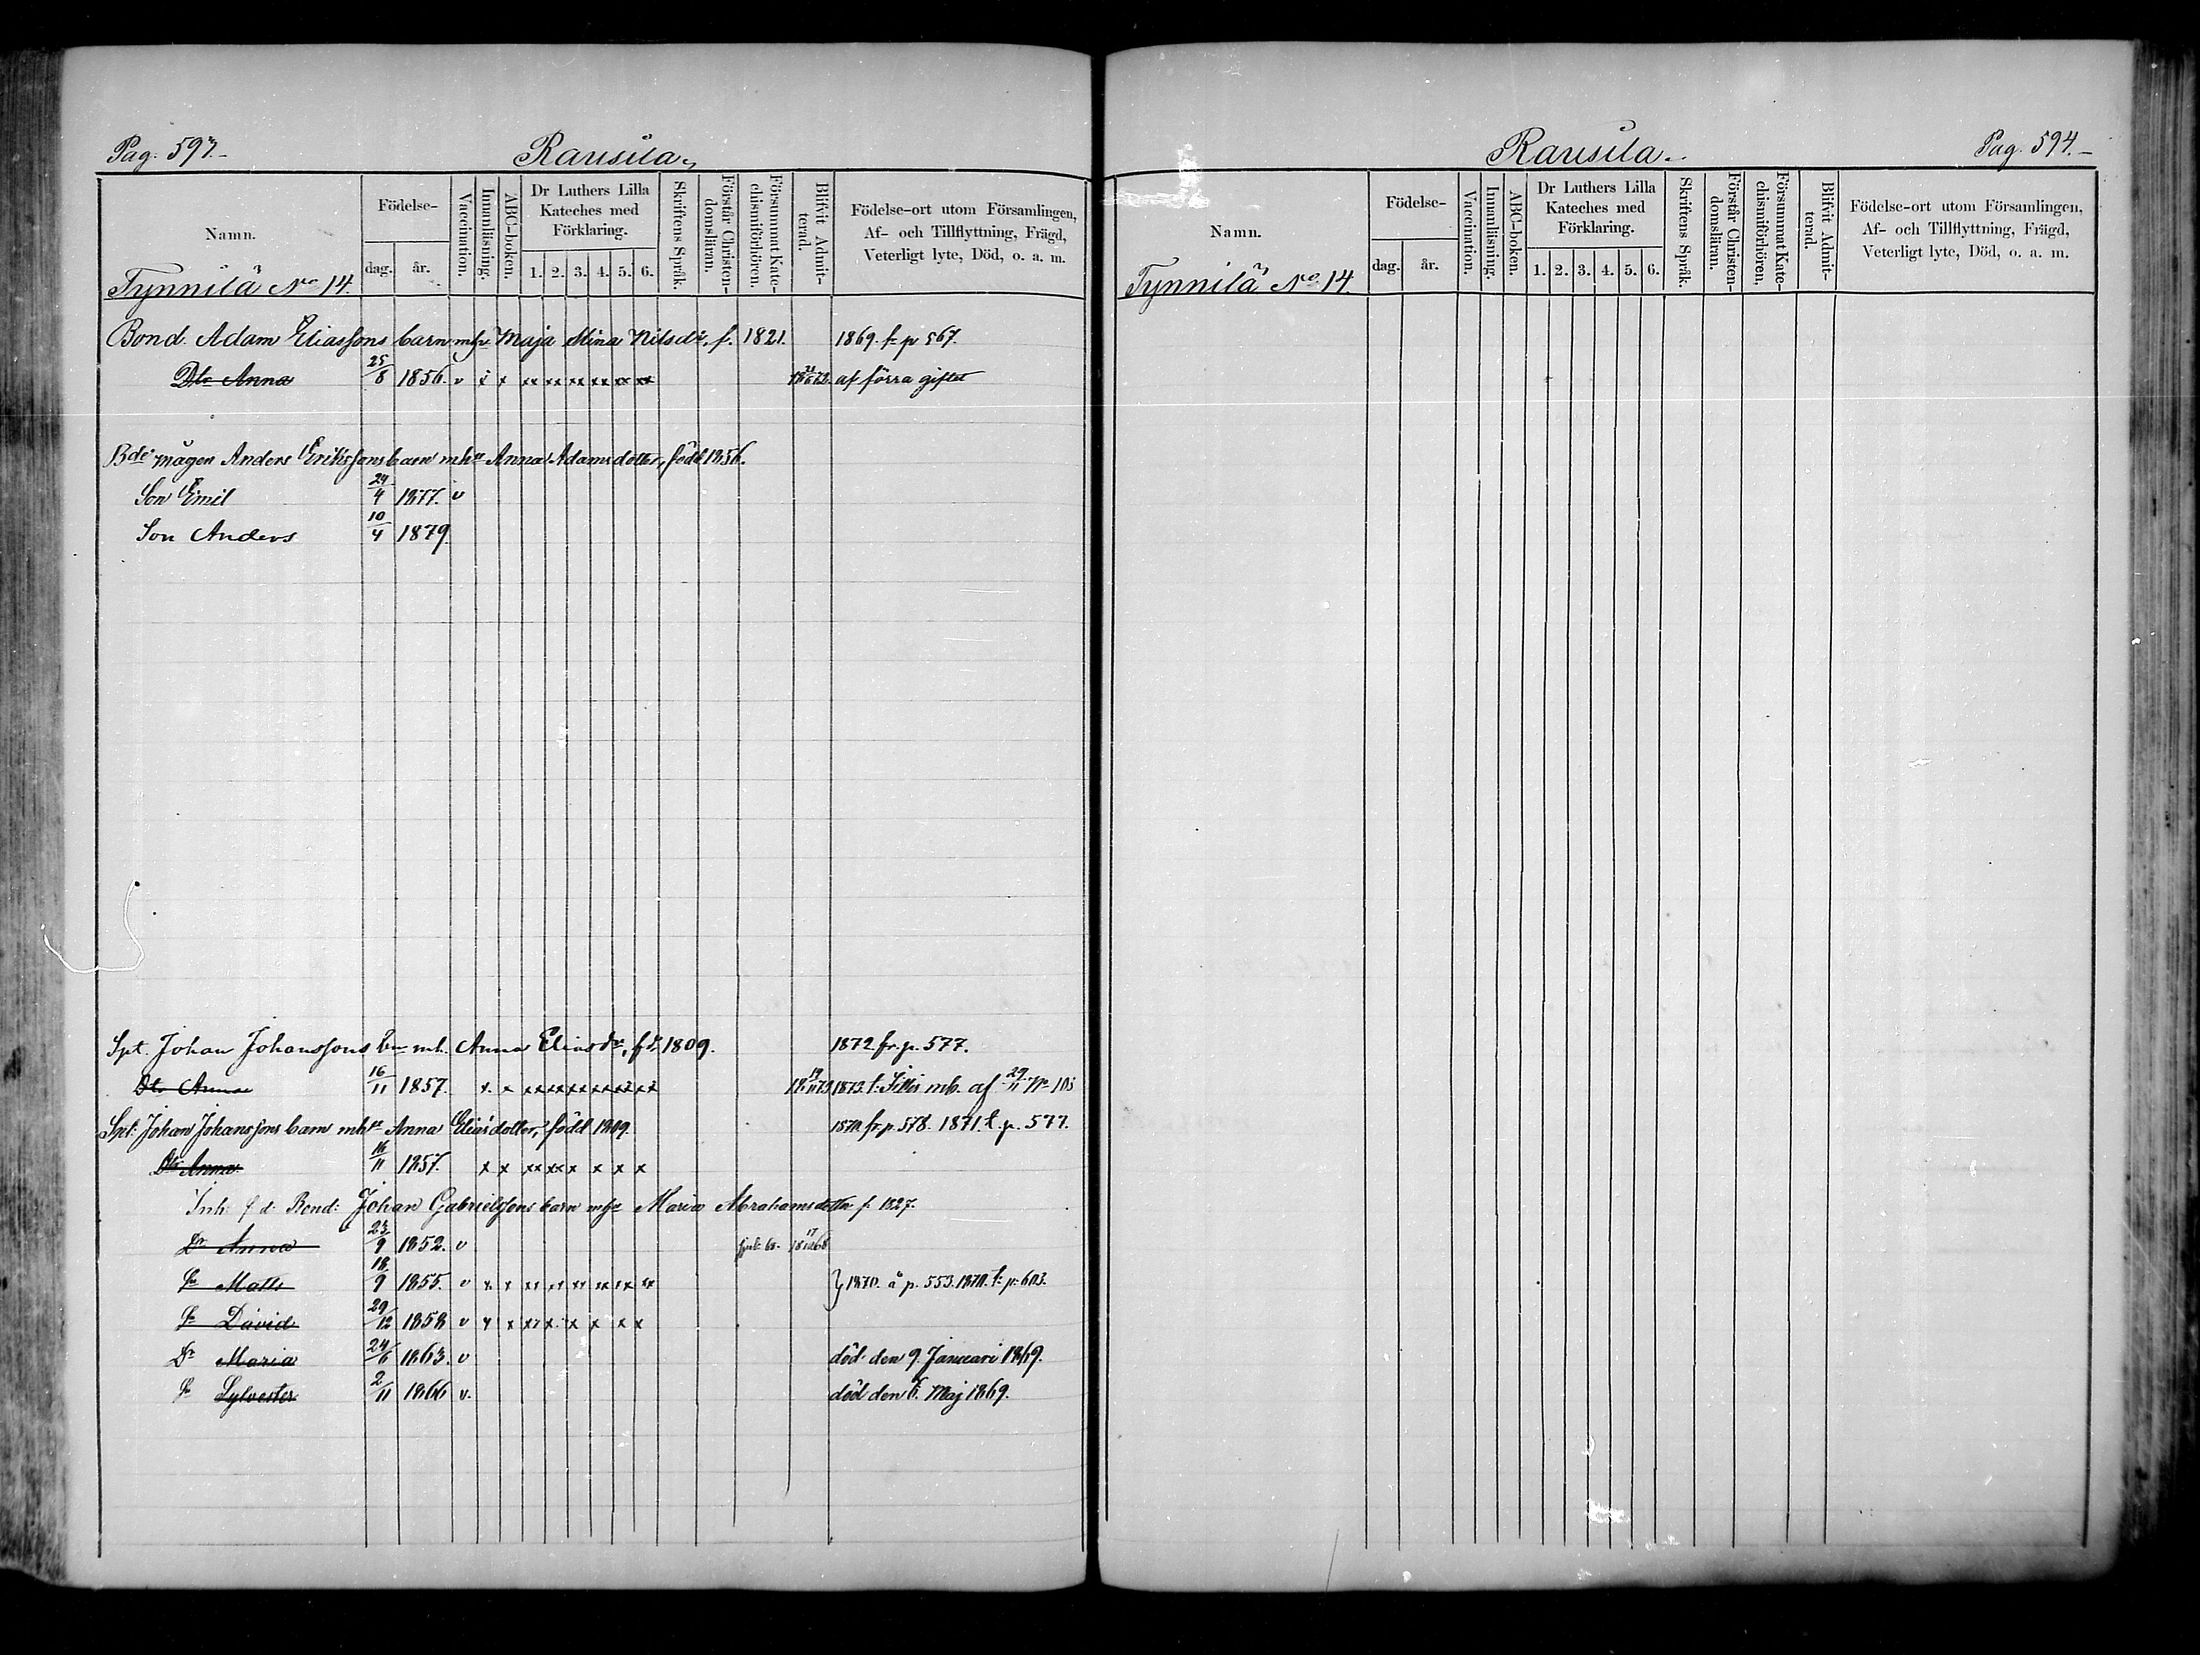 Pag. 593.
Rausila.
Namn.
Födelse-
dag.
år.
Vaccination.
Innanläsning.
ABC-boken.
Dr Luthers Lilla
Kateches med
Förklaring.
1. 2. 3. 4. 5. 6.
Skriftens Språk.
Förstår Christen-
domsläran.
Försummat Kate-
chismiförhören.
Blifvit Admit-
terad.
Födelse-ort utom Församlingen,
Af- och Tillflyttning, Frägd,
Veterligt lyte, Död, o. a. m.
Tynnilä No 14.
Bond. Adam Eliassons barn m hu Maja Stina Nilsdr, f. 1821. 1869. fr p 567.
Dtr Anna 25/8 1856. v x x xx xx xx xx xx xx af förra giftet
Bde mågen Anders Erikssons barn m hu Anna Adamsdotter, född 1856.
Son Emil 29/4 1877. v
Son Anders 10/4 1879.
Spt. Johan Johanssons bn m h. Anna Eliasdr, fd. 1809. 1872 fr. p. 577.
Dtr Anna 16/11 1857. x x xx xx xx xx xx xx 19/11 73 1873. t. mb. af 29/11 No 103
Spt. Johan Johanssons barn m hu Anna Eliasdotter, född 1809. 1870. fr. p. 578. 1871. t. p. 577.
Dtr Anna 16/11 1857. x x xx xx x x x x
Inh. f d. Bond: Johan Gabrielssons barn m hu Maria Abrahamsdotter f. 1827.
Dr Anna 23/9 1852. v
Sn Matts 18/9 1855. v x x xx xx xx xx xx xx } 1870. å p. 553. 1870. t: p: 603.
Sn David 29/12 1858 v x x xx x x x x x
Dr Maria 24/6 1863. v död den 9. Januari 1869.
Sn Sylvester 2/11 1866 v. död den 6. Maj 1869.
Rausila.
Pag. 594.
Namn.
Födelse-
dag.
år.
Vaccination.
Innanläsning.
ABC-boken.
Dr Luthers Lilla
Kateches med
Förklaring.
1. 2. 3. 4. 5. 6.
Skriftens Språk.
Förstår Christen-
domsläran.
Försummat Kate-
chismiförhören,
Blifvit Admit-
terad.
Födelse-ort utom Församlingen,
Af- och Tillflyttning, Frägd,
Veterligt lyte, Död, o. a. m.
Tynnilä No 14.